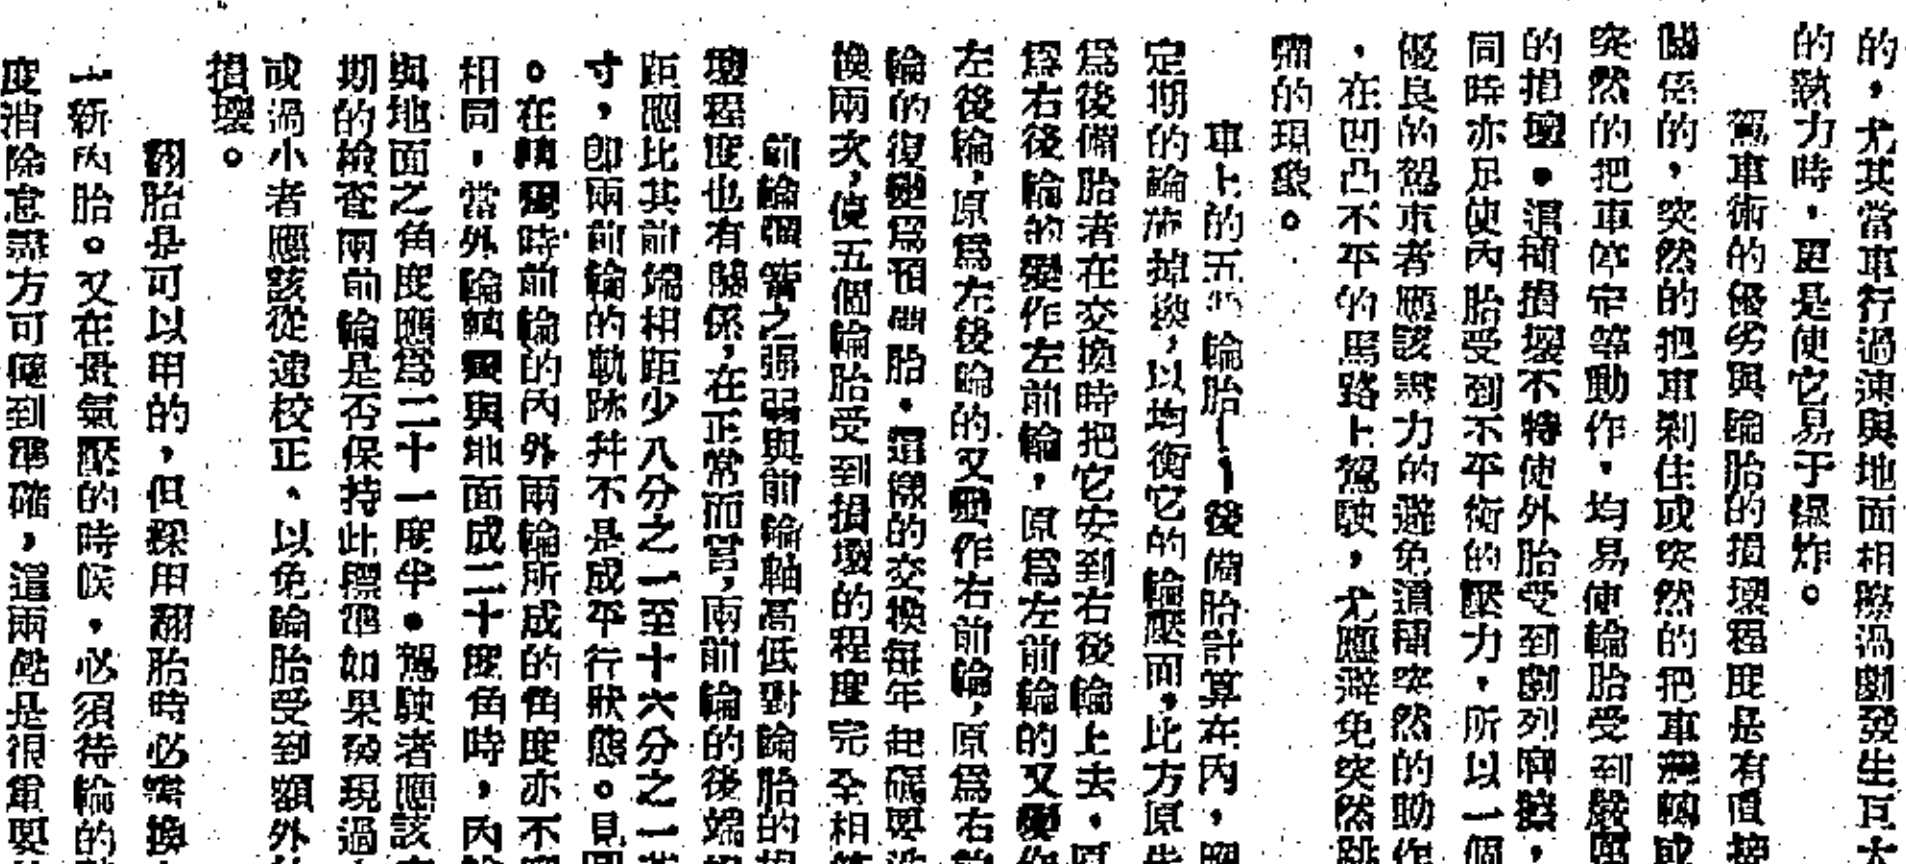 的，尤其當車行過速與地面相擦過劇發生互大
的熱力時，更是使它易于爆炸。
駕車術的優劣與輪胎的損壞程度是有直接
關係的，突然的把車剎住或突然的把車灣轉或
突然的把車停定等動作，均易使輪胎受到嚴厲
的損壞。這種損壞不特使外胎受到劇列磨擦，
同時亦足使內胎受到不平衡的壓力，所以一個
優良的駕車者應該力的避免這種突然的動作
，在凹凸不平的馬路上駕駛，尤應避免突然跳
的現象。
車上的五輪胎後備胎計算在內，
定期的輪流掉換，以均衡它的輪壓面，比方原先
爲後備胎者在交換時把它安到右後輪上去，原
爲右後輪的變作左前輪，原爲左前輪的又變作
左後輪，原爲左後輪的又變作右前輪，原爲右前
輪的復變爲預備胎。這樣的交換每年起碼要
換兩次，使五個輪胎受到損壞的程度完全相
前輪彈簧之强弱與前輪軸高低對輪胎的損
壞程度也有關係，在正常而言，兩前輪的後端相
距應比其前端相距少八分之一至十六分之一
寸，卽兩前輪的軌跡幷不是成平行狀態。見圖
。在轉灣時前輪的內外兩輪所成的角度亦不
相同，當外輪軸與地面成二十度角時，內輪
與地面之角度應爲二十一度半。駕駛者應該
期的檢查兩前輪是否保持此標準如果發現過
或過小者應該從速校正、以免輪胎受到額外
損壞。
翻胎是可以用的，但採用翻胎時必需換
一新內胎。又在量氣壓的時候，必須待輪的
度消除方可得到準確，這兩點是很重要